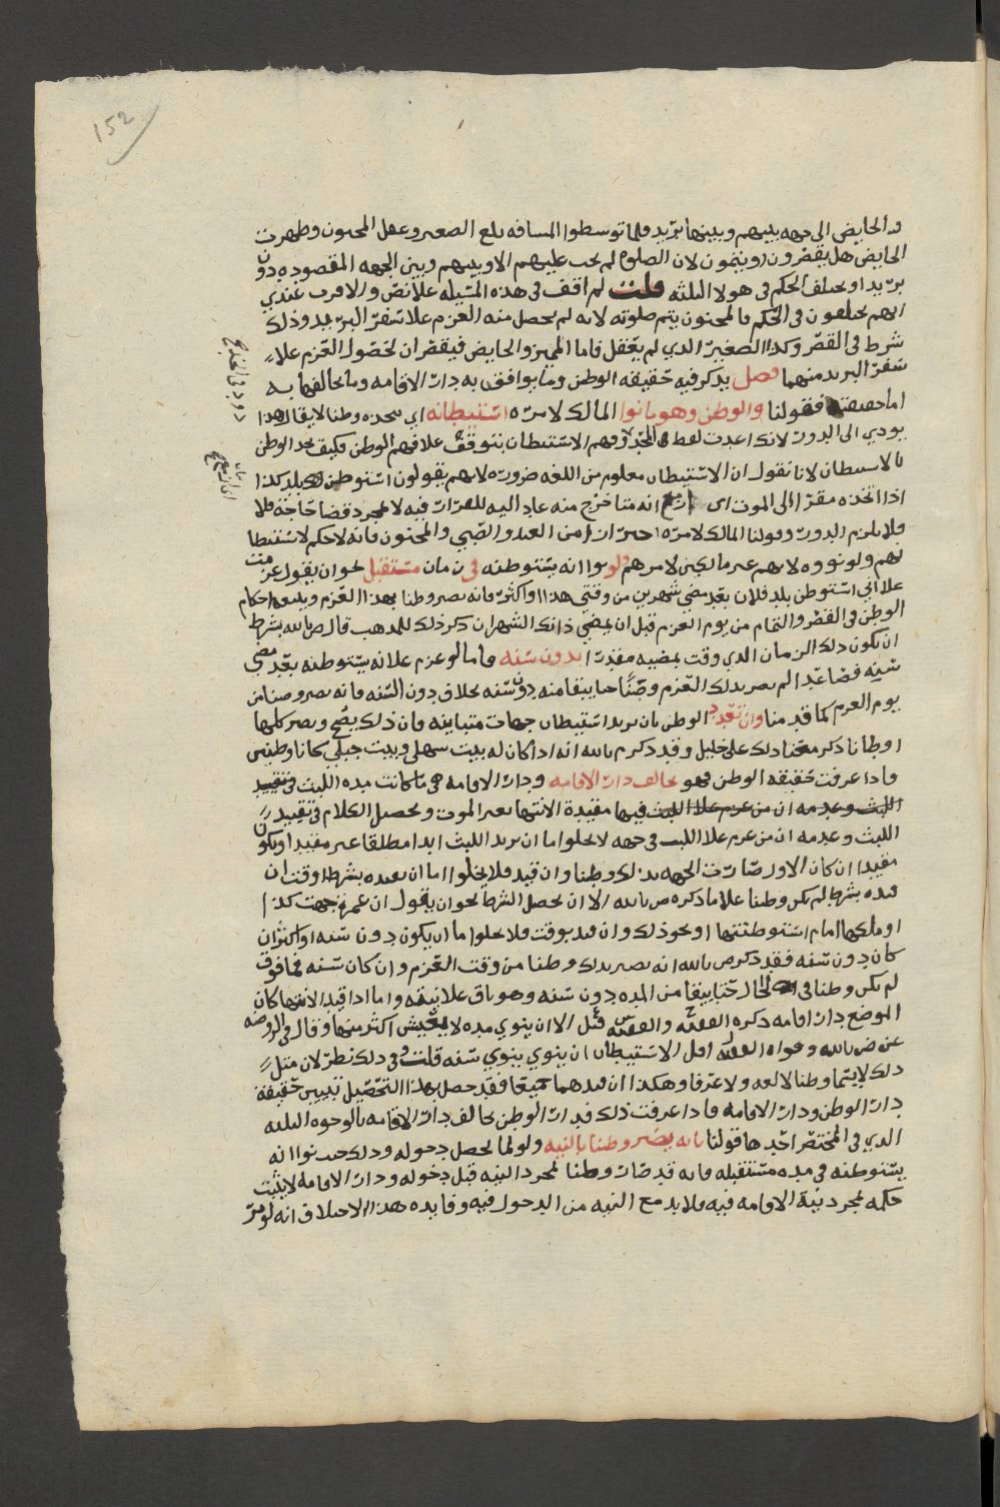 152
والحايض الى جهه بينهم وبينها بريد فلما توسطوا المسافه بلغ الصغير وعقل المجنون وطهرت
الحايض هل يقصرون او يتمون لان الصلوه لم تجب عليهم الا وبينهم وبين الجهه المقصوده دون
بريد او يختلف الحكم في هولا الثلثه قلت لم اقف في هذه المسئله علا نص والاقرب عندي
انهم يختلفون في الحكم فالمجنون يتم صلوته لانه لم يحصل منه العزم علا سفر البريد وذلك
شرط في القصر وكذا الصغير الذي لم يعقل فاما المميز والحايض فيقصران لحصول العزم علا
سفر البريد منهما فصل يذكر فيه حقيقه الوطن وما يوافق به دار الاقامه وما يخالفها به
اما حقيقته فقولنا والوطن وهو ما نوا المالك لامره استيطانه اي تحده وطنا لا يقال هذا
يودي الى الدور لانك اعدت لفظ المجد وفهم الاستيطان يتوقف علا فهم الوطن فكيف تحد الوطن
بالاستيطان لانا نقول ان الاستيطان معلوم من اللغه ضروره لانهم يقولون استوطن بلد كذا
اذا اتخذه مقرا الى الموت اي انه متا خرج منه عاد اليه للقرار فيه لا لمجرد قضا حاجة فلا
فلا يلزم الدور وقولنا المالك لامره احترازا من العبد والصبي والمجنون فانه لا حكم لاستيطا
نهم ولو نووه لانهم غير مالكين لامرهم ولو نوا انه يستوطنه في زمان مستقبل نحو ان يقول عزمت
علا اني استوطن بلد فلان بعد مضي شهرين من وقتي هذا او اكثر فانه يصير وطنا بهذا العزم ويتبعه احكام
الوطن في القصر والتمام من يوم العزم قبل ان يمضي ذانك الشهران ذكر ذلك للمذهب قال ص بالله بشرط
ان يكون ذلك الزمان الذي وقت بمضيه مقدرا بدون سنه فاما لو عزم علا انه يستوطنه بعد مضي
سنة فصاعدا لم يصر بذلك العزم وطنا حتا يبقا منه دون سنه بخلاف دون السنه فانه يصير وطنا من
يوم العزم كما قدمنا وان تعدد الوطن بان يريد استيطان جهات متباينه فان ذلك يصح ويصير كلها
اوطانا ذكر معنا ذلك علي خليل وقد ذكر م بالله انه اذا كان له بيت سهلي وبيت جبلي كانا وطنين
فاذا عرفت حقيقه الوطن فهو يخالف دار الاقامه ودار الاقامه هي ما كانت مده اللبث في تقييد
اللبث وعدمه ان من عزم علا اللبث فيها مقيدة الانتها بغير الموت وتحصيل الكلام في تقييد
اللبث وعدمه ان من عزم علا اللبث في جهه لا يخلوا اما ان يريد اللبث ابدا مطلقا غير مقيد او يكون
مقيدا ان كان الاول صارت الجهه بذلك وطنا وان قيد فلا يخلوا اما ان يقيده بشرط او وقت ان
قيده بشرط لم يكن وطنا علا ما ذكره ص بالله الا ان يحصل الشرط نحو ان يقول ان عمرت جهت كذا
او ملكها امام استوطنتها او نحو ذلك وان قيد بوقت فلا يخلوا ما ان يكون دون سنه او اكثر ان
كان دون سنه فقد ذكر ص بالله انه يصير بذلك وطنا من وقت العزم وان كان سنه فما فوق
لم يكن وطنا في الحال حتا يبقا من المده دون سنه وهو باق علا نيته واما اذا قيد الانتها كان
الموضع دار اقامه ذكره الفقيه والفقيه قيل الا ان ينوي مده لا يعيش اكثر منها وقال في الروضه
عن ض بالله وقواه الفقيه اقل الاستيطان ان ينوي ينوي سنه قلت وفي ذلك نظر لان مثل
ذلك لا يسما وطنا لا لغه ولا عرفا وهكذا ان قيدهما جميعا فقد حصل بهذا التحصيل تبيين حقيقة
دار الوطن ودار الاقامه فاذا عرفت ذلك فدار الوطن تخالف دار الاقامه بالوجوه الثلثه
الذي في المختصر احدها قولنا بانه يصير وطنا بالنيه ولو لما يحصل دخوله وذلك حيث نوا انه
يستوطنه في مده مستقبله فانه قد صار وطنا لمجرد النيه قبل دخوله ودار الاقامه لا يثبت
حكمه بمجرد نية الاقامه فيه فلا بد مع النيه من الدخول فيه وفايده هذا الاختلاف انه لو مر